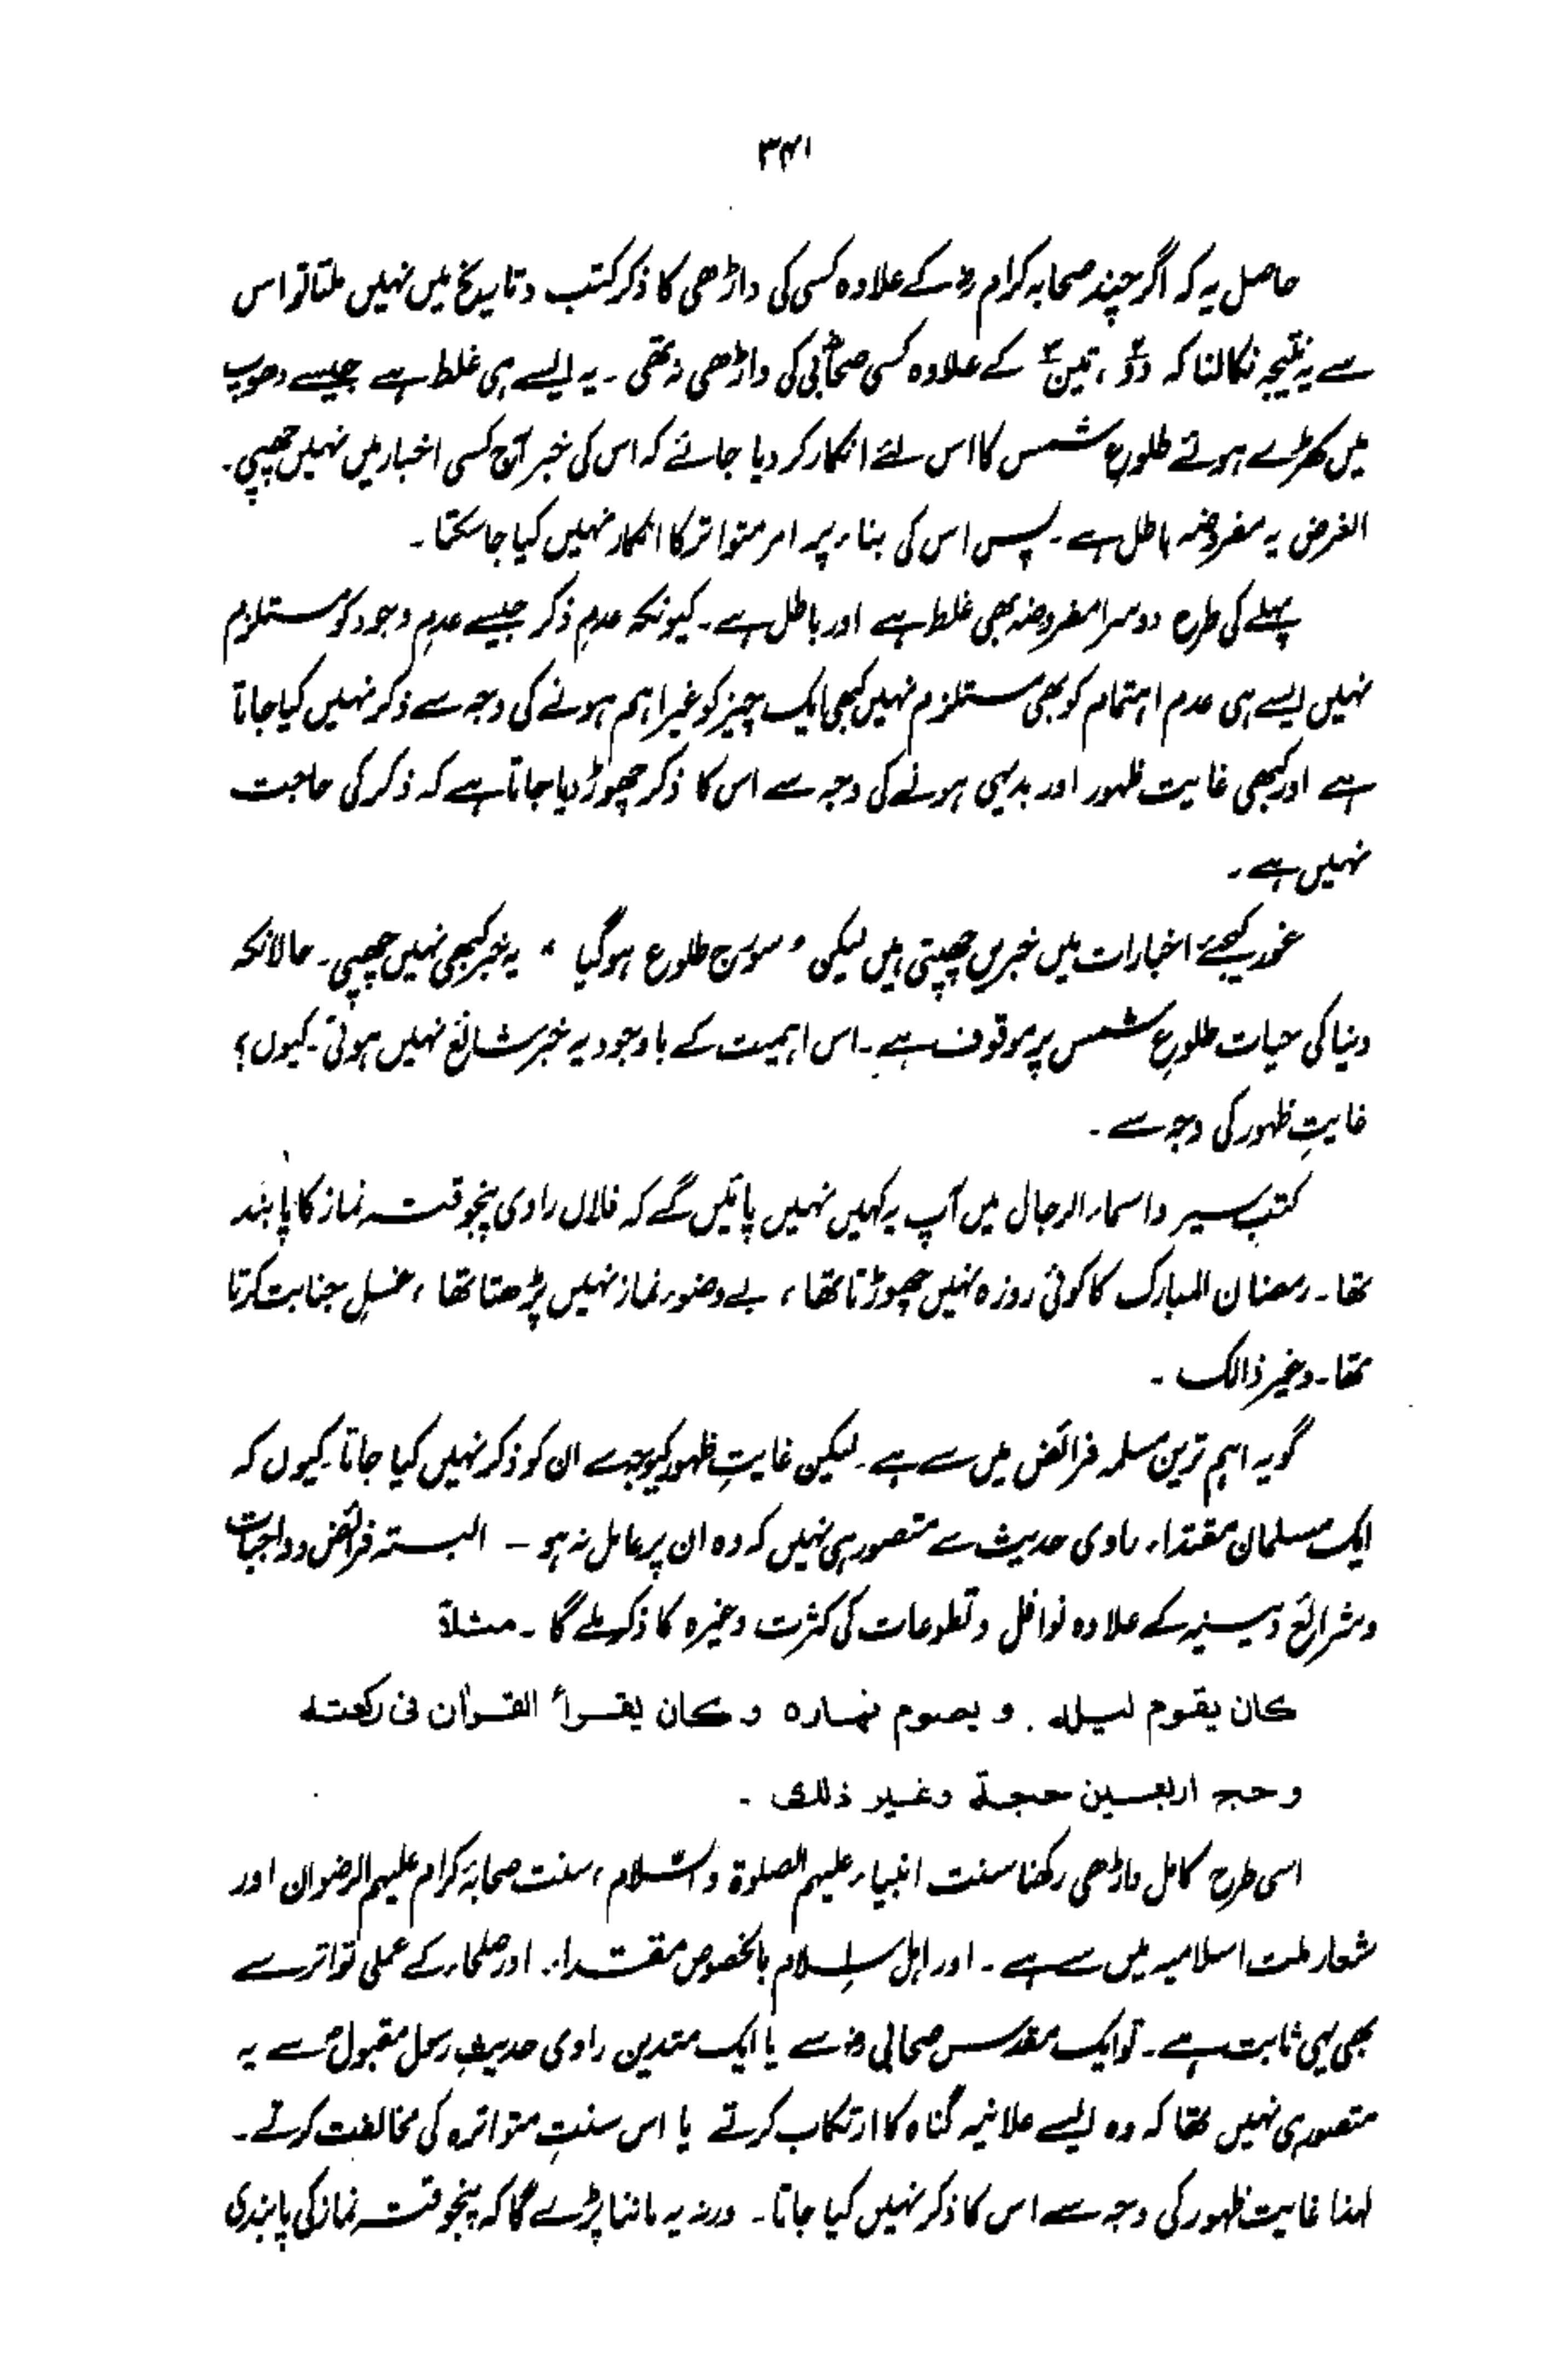 ۳۴۱
حاصل یہ کہ اگر چند صحابہ کرام رض کے علاوہ کسی کی داڑھی کا ذکر کتب و تاریخ میں نہیں ملتا تو اس
سے یہ نتیجہ نکالنا کہ دوؓ ، تینؓ کے علاوہ کسی صحابیؓ کی داڑھی نہ تھی ۔ یہ ایسے ہی غلط ہے جیسے دھوپ
میں کھڑے ہوتے طلوعِ شمس کا اس لئے انکار کر دیا جائے کہ اس کی خبر آج کسی اخبار میں نہیں چھپی ۔
الغرض یہ مفروضہ باطل ہے ۔ پس اس کی بناء پر امر متواتر کا انکار نہیں کیا جا سکتا ۔
پہلے کی طرح دوسرا مفروضہ بھی غلط ہے اور باطل ہے ۔ کیونکہ عدمِ ذکر جیسے عدمِ وجود کو مستلزم
نہیں ایسے ہی عدم اہتمام کو بھی مستلزم نہیں کبھی ایک چیز کو غیر اہم ہونے کی وجہ سے ذکر نہیں کیا جاتا
ہے اور کبھی غایت ظہور اور بدیہی ہونے کی وجہ سے اس کا ذکر چھوڑ دیا جاتا ہے کہ ذکر کی حاجت
نہیں ہے ۔
غور کیجئے اخبارات میں خبریں چھپتی ہیں لیکن " سورج طلوع ہوگیا " یہ خبر کبھی نہیں چھپی ۔ حالانکہ
دنیا کی حیات طلوعِ شمس پر موقوف ہے ۔ اس اہمیت کے باوجود یہ خبر شائع نہیں ہوتی ۔ کیوں ؟
غایتِ ظہور کی وجہ سے ۔
کتب سیر و اسماء الرجال میں آپ یہ کہیں نہیں پائیں گے کہ فلاں راوی پنجوقتہ نماز کا پابند
تھا ۔ رمضان المبارک کا کوئی روزہ نہیں چھوڑتا تھا ، بے وضوء نماز نہیں پڑھتا تھا ، غسلِ جنابت کرتا
تھا ۔ وغیر ذالک ۔
گو یہ اہم ترین مسلمہ فرائض میں سے ہے ۔ لیکن غایتِ ظہور کیوجہ سے ان کو ذکر نہیں کیا جاتا ۔ کیوں کہ
ایک مسلمان مقتداء راوی حدیث سے متصور ہی نہیں کہ وہ ان پر عامل نہ ہو ۔ البتہ فرائض و واجبات
و شرائع دینیہ کے علاوہ نوافل و تطوعات کی کثرت وغیرہ کا ذکر ملے گا ۔ مثلاً
کان یقوم لیلہ . و یصوم نہارہ و کان یقرأ القرآن فی رکعتہ
و حج اربعین حجۃ وغیر ذلک ۔
اسی طرح کامل داڑھی رکھنا سنت انبیاء علیہم الصلوۃ والسّلام ، سنت صحابۂ کرام علیہم الرضوان اور
شعار ملت اسلامیہ میں سے ہے ۔ اور اہل اسلام بالخصوص مقتداء اور صلحاء کے عملی تواتر سے
بھی یہی ثابت ہے ۔ تو ایک مقدس صحابی رض سے یا ایک متدین راوی حدیثِ رسول مقبولؐ سے یہ
متصور ہی نہیں تھا کہ وہ ایسے علانیہ گناہ کا ارتکاب کرتے یا اس سنتِ متواترہ کی مخالفت کرتے ۔
لہذا غایت ظہور کی وجہ سے اس کا ذکر نہیں کیا جاتا ۔ ورنہ یہ ماننا پڑے گا کہ پنجوقتہ نماز کی پابندی